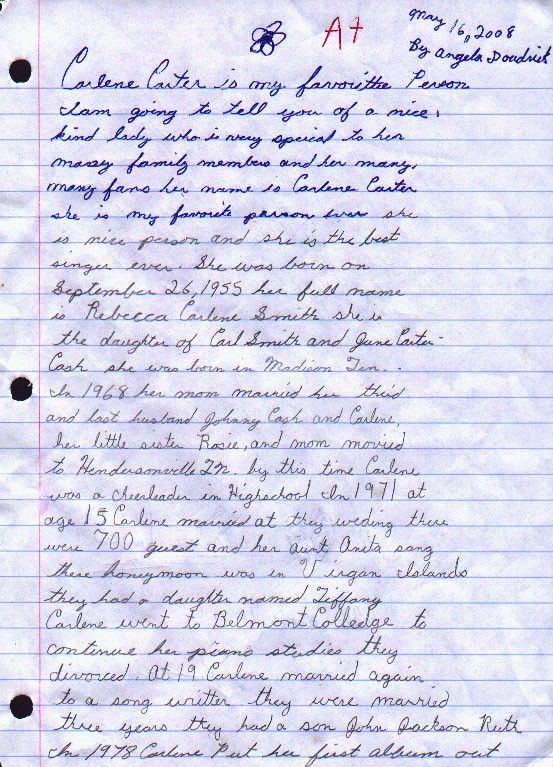 A+
May 16, 2008
By Angela Doudrick
Carlene Carter is my favoritthe Person
I am going to tell you of a nice,
kind lady who is very speical to her
massy family members and her many,
many fans her name is Carlene Carter
she is my favorite parson ever she
is nice person and she is the best
singer ever. She was born on
September 26, 1955 her full name
is Rebecca Carlene Smith she is
the daughter of Carl Smith and June Carter-
Cash she was born in Madison Ten..
In 1968 her mom married her third
and last husland Johnny Cash and Carlene,
her little sister Rosie, and mom movied
to Hendersonville Tn. by this time Carlene
was a cheerleader in Highschool In 1971 at
age 15 Carlene married at they weding there
were 700 guest and her aunt Anita sang
there honeymoon was in Virgan Islands
they had a daughter named Tiffany
Carlene went to Belmont Colledge to
continue her piano studies they
divorced. At 19 Carlene married again
to a song writter they were married
three years they had a son John Jackson Ruth
In 1978 Carlene Put her first album out